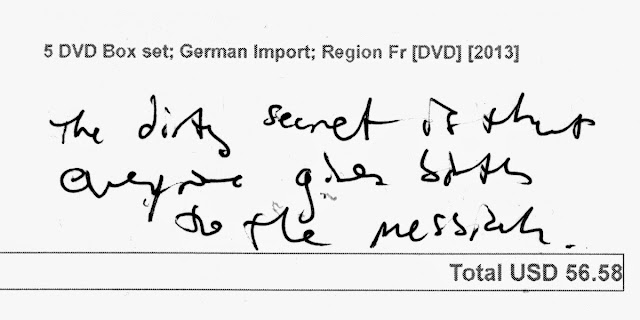 5 DVD Box set; German Import; Region Fr [DVD] [2013]
The dirty secret is that
everyone gives birth
to the messiah.
Total USD 56.58